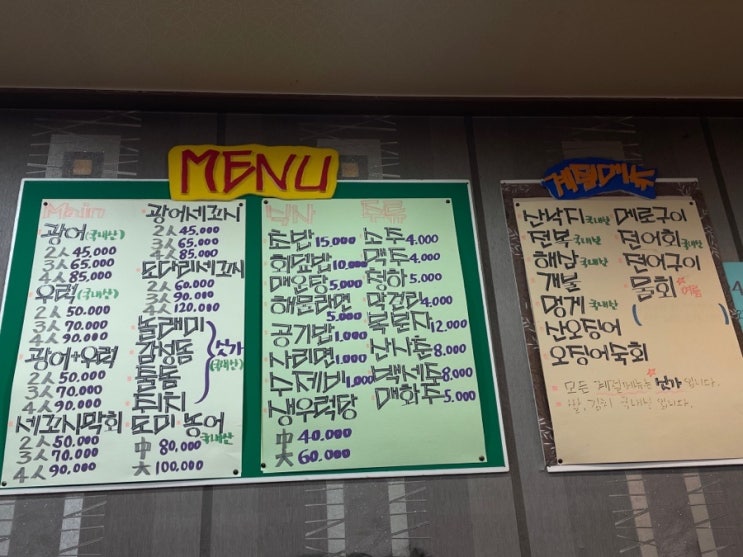 MENU
Main
광어(국내산)
2人 45.000
3人 65.000
4人 85.000
우럭(국내산)
2人 50.000
3人 70.000
4人 90.000
광어+우럭
2人 50.000
3人 70.000
4人 90.000
세꼬시막회
2人 50.000
3人 70.000
4人 90.000
광어세꼬시
2人 45.000
3人 65.000
4人 85.000
도다리세꼬시
2人 60.000
3人 90.000
4人 120.000
놀래미
감성돔
돌돔
쥐치
싯가
(국내산)
도미·농어
국내산
中 80.000
大 100.000
식사
초밥 15,000
회덮밥 10,000
매운탕 5,000
해물라면 5,000
공기밥 1,000
사리면 1,000
수제비 1,000
생우럭탕
中 40.000
大 60.000
주류
소주 4.000
맥주 4.000
청하 5.000
막걸리 4.000
복분자 12.000
산사춘 8.000
백세주 8.000
매화수 5.000
계절메뉴
산낙지 국내산
전복 국내산
해삼 국내산
개불
멍게 국내산
산오징어
오징어숙회
메로구이
전어회 국내산
전어구이
물회 여름
( )
모든 계절메뉴는 싯가 입니다.
쌀, 김치 국내산 입니다.